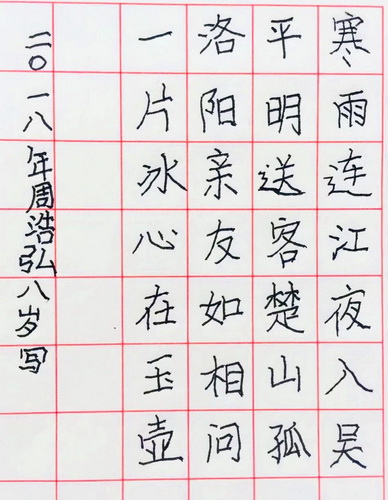 寒雨连江夜入吴
平明送客楚山孤
洛阳亲友如相问
一片冰心在玉壶
二〇一八年周浩弘八岁写